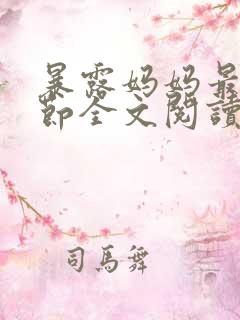 暴露妈妈最
節全文閱讀
司馬舞